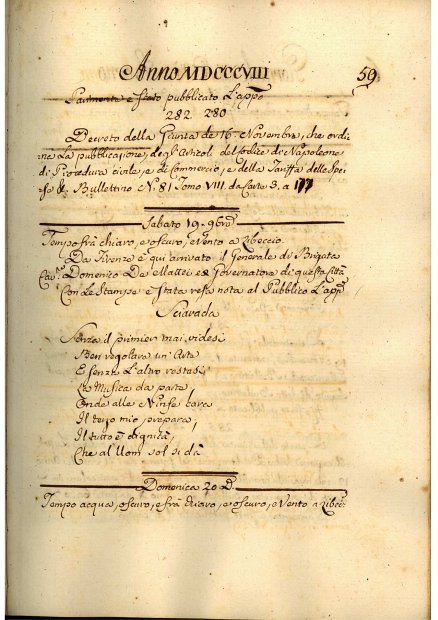 Anno MDCCCVIII 59
Parimente è stato pubblicato L'app.º
282. 280
Decreto della Giunta de 16 Novembre, che ordi
ne La pubblicazione, degl'Articoli del Codice di Napoleone
di Procedura civile, e di Commercio, e della Tariffa delle Spe
se &. Bullettino N.º 81 Tomo VIII. da Carte 3. a 177
Sabato 19. 9bre
Tempo frà chiaro, e oscuro, e Vento a Libeccio.
Da Firenze è qui arrivato il Generale di Brigata
Cav.r Domenico De Mattei ed Governatore di questa Città
Con Le Stampe è Stata resa nota al Pubblico L'app.
Sciarada
Senza il primier mai videsi
Ben regolare un'Arte
E senza L'altro restasi
La Musica da parte
Onde alle Ninfe care
Il terzo mio, prepara,
Il tutto è dignità,
Che al Uom sol si dà
Domenica 20 D.
Tempo acqua, oscuro, e frà chiaro, e oscuro, e Vento a Libec: